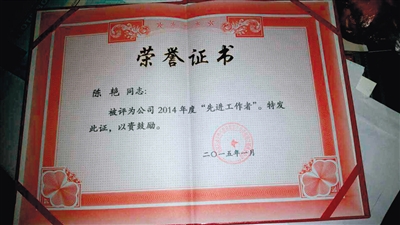 荣誉证书
陈 艳 同志：
被评为公司2014年度“先进工作者”。特发
此证，以资鼓励。
二〇一五年一月